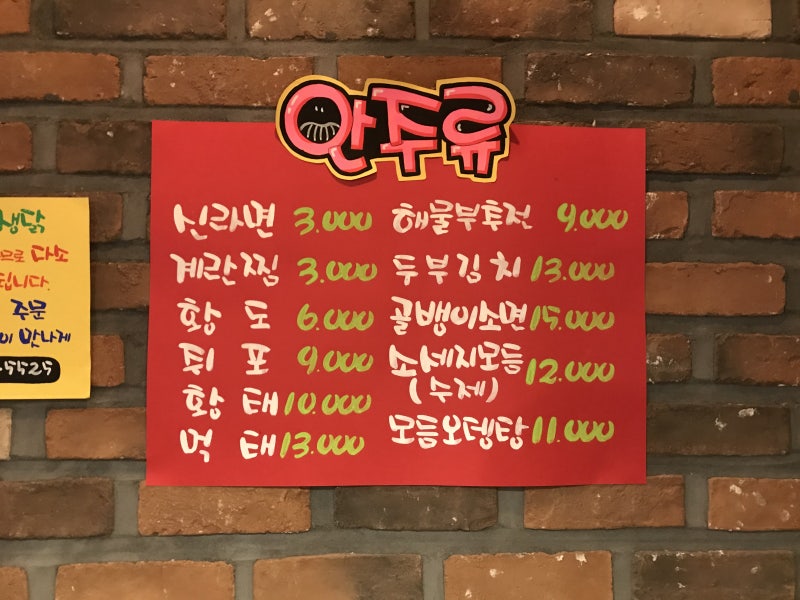 안주류
신라면 3.000
계란찜 3.000
황도 6.000
쥐포 9.000
황태 10.000
먹태 13.000
해물부추전 9.000
두부김치 13.000
골뱅이소면 15.000
소세지모듬 12.000
(수제)
모듬오뎅탕 11.000
생닭
므로 다소
됩니다.
주문
이 맛나게
5525